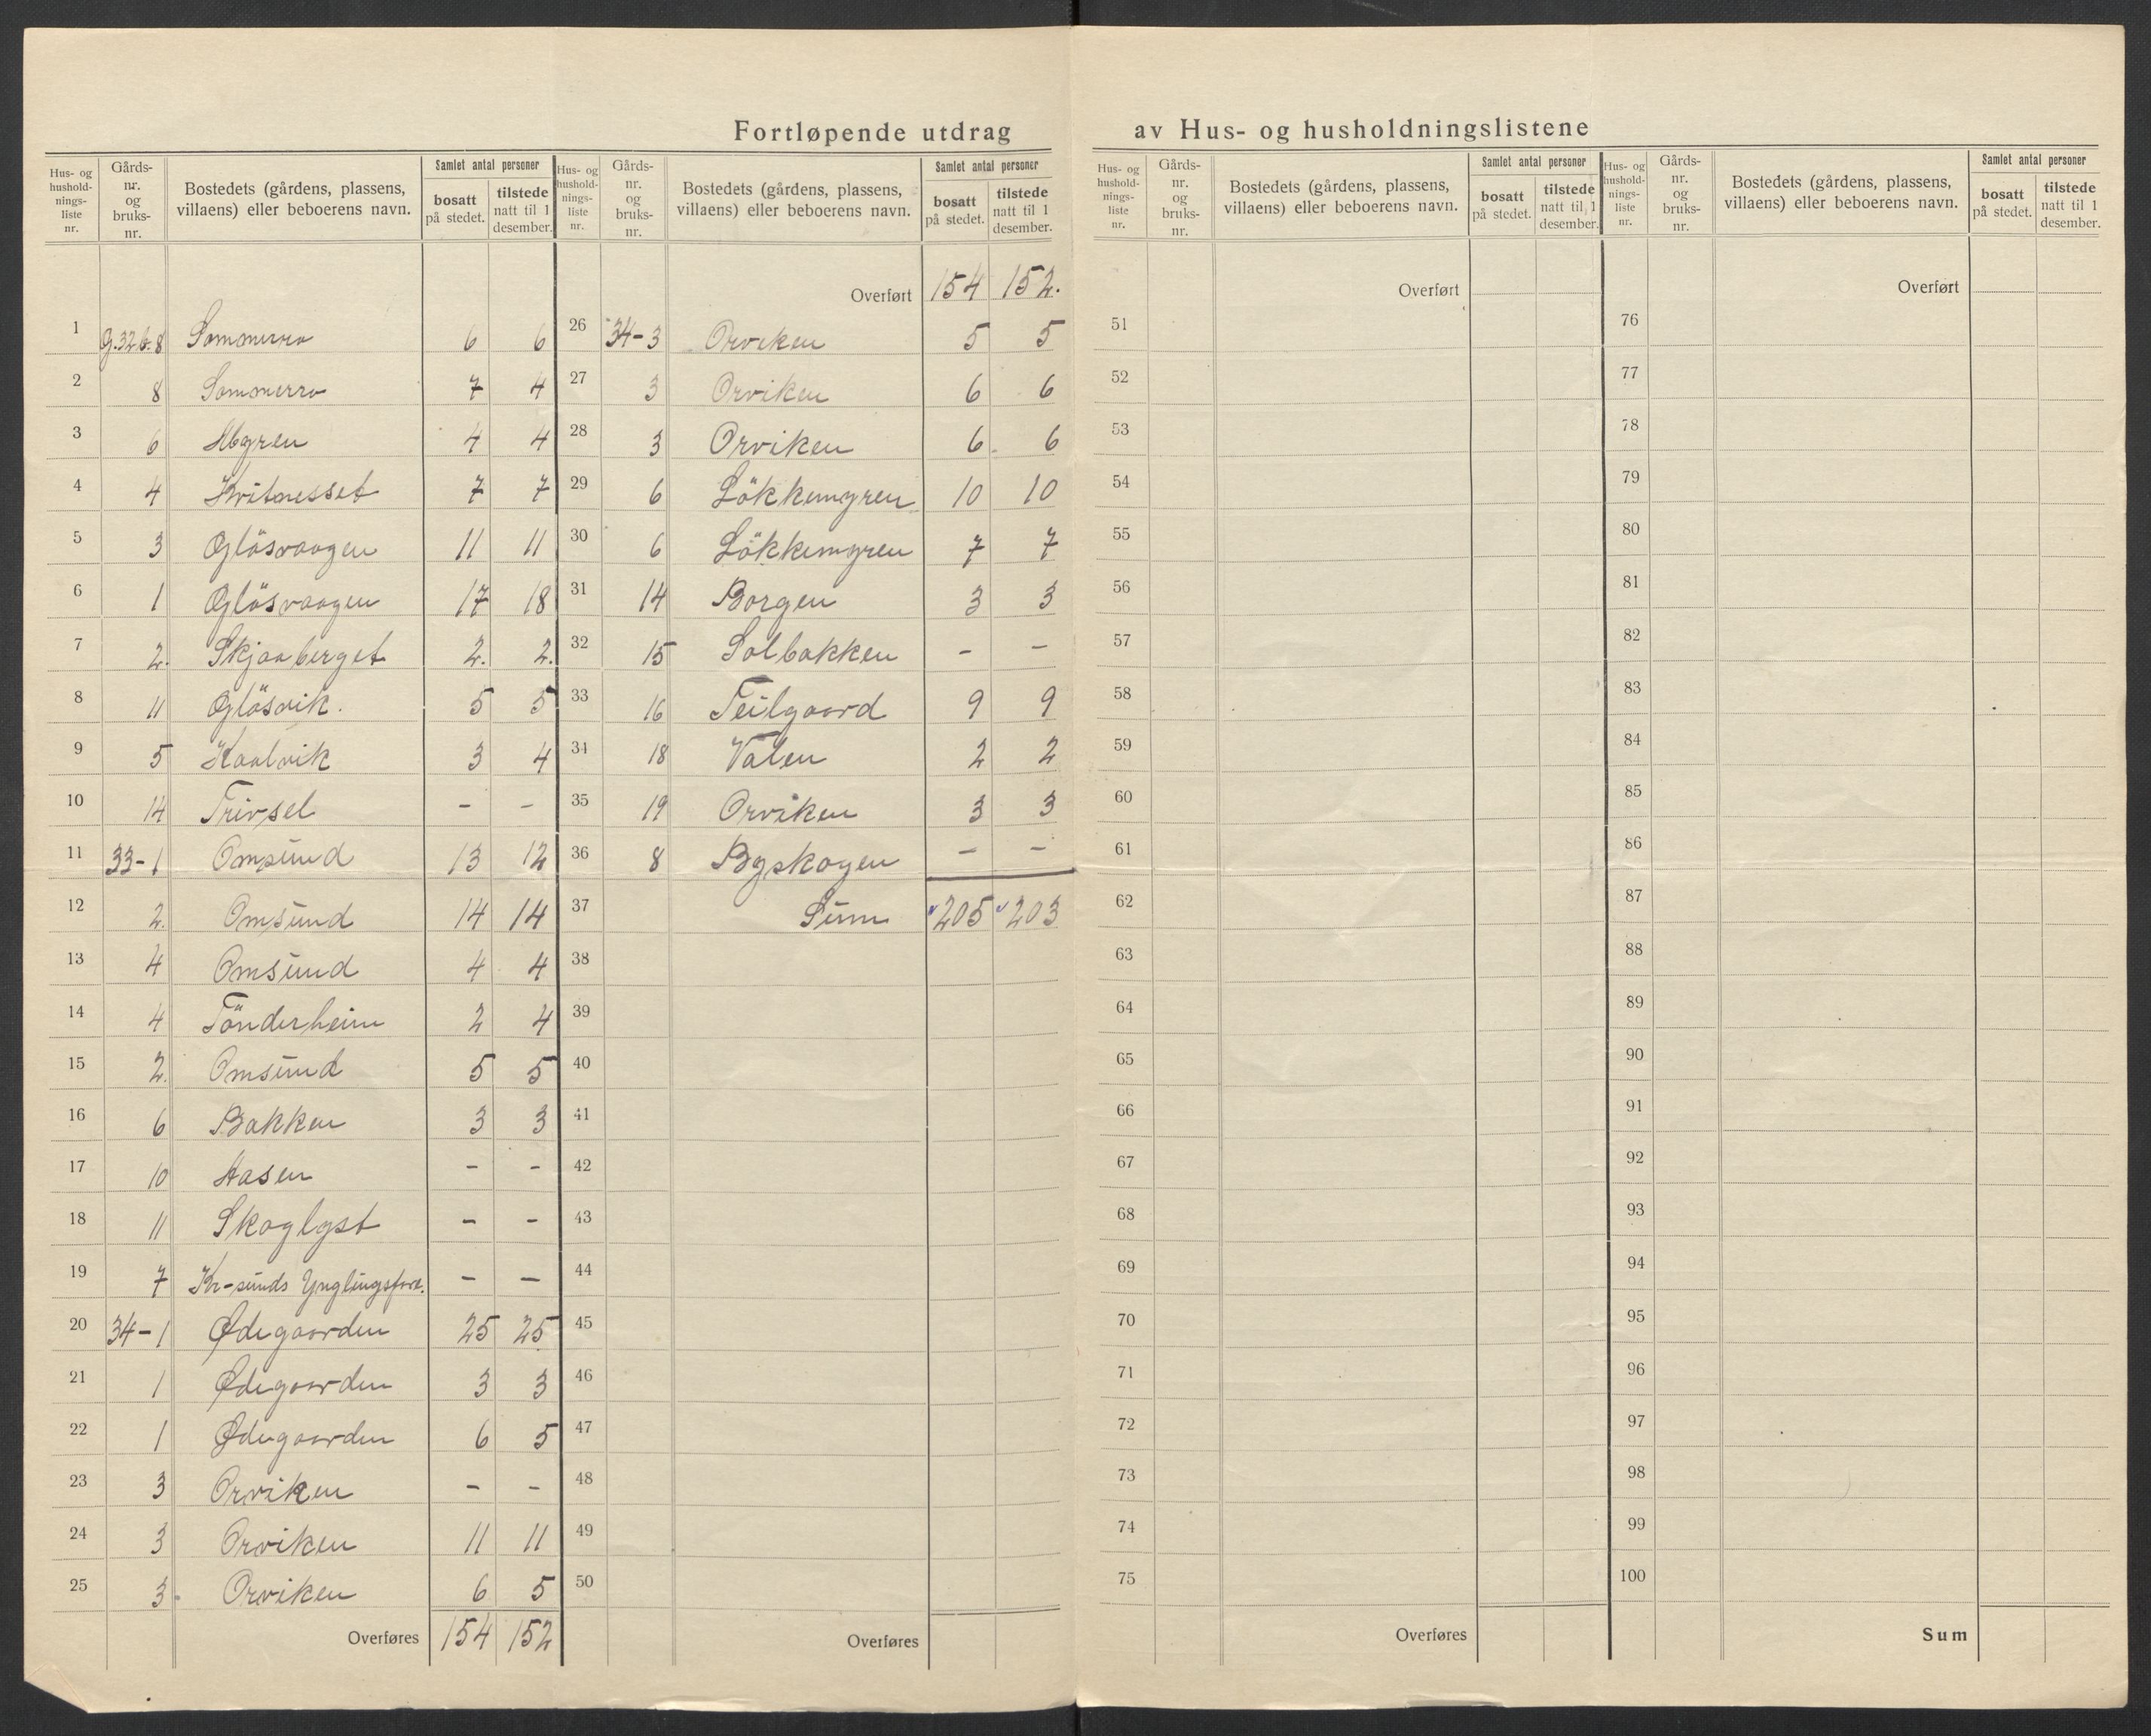 Fortløpende utdrag av Hus- og husholdningslistene
Hus- og hushold-nings-liste nr. Gårds-nr. og bruks-nr. Bostedets (gårdens, plassens, villaens) eller beboerens navn. Samlet antal personer bosatt på stedet. tilstede natt til 1 desember.
1 G.32 b.8 Sommerro 6 6
2 8 Sommerro 7 4
3 6 Mogren 4 4
4 4 Kvitnesset 7 7
5 3 Glösvaagen 11 11
6 1 Glösvaagen 17 18
7 2. Skjaaberget 2. 2.
8 11 Glösvik. 5 5
9 5 Kaalvik 3 4
10 14 Trivsel - -
11 33-1 Omsund 13 12
12 2. Omsund 14 14
13 4 Omsund 4 4
14 4 Tönderheim 2 4
15 2. Omsund 5 5
16 6 Bakken 3 3
17 10 Aasen - -
18 11 Skoglyst - -
19 7 Kr-sunds Ynglingsfore. - -
20 34-1 Ødegaarden 25 25
21 1 Ødegaarden 3 3
22 1 Ødegaarden 6 5
23 3 Orviken - -
24 3 Orviken 11 11
25 3 Orviken 6 5
Overføres 154 152
Hus- og hushold-nings-liste nr. Gårds-nr. og bruks-nr. Bostedets (gårdens, plassens, villaens) eller beboerens navn. Samlet antal personer bosatt på stedet. tilstede natt til 1 desember.
Overført 154 152.
26 34-3 Orviken 5 5
27 3 Orviken 6 6
28 3 Orviken 6 6
29 6 Lökkemyren 10 10
30 6 Lökkemyren 7 7
31 14 Borgen 3 3
32 15 Solbakken - -
33 16 Teilgaard 9 9
34 18 Valen 2 2
35 19 Orviken 3 3
36 8 Byskogen - -
37 Sum 205 203
38
39
40
41
42
43
44
45
46
47
48
49
50
Overføres
Hus- og hushold-nings-liste nr. Gårds-nr. og bruks-nr. Bostedets (gårdens, plassens, villaens) eller beboerens navn. Samlet antal personer bosatt på stedet. tilstede natt til 1 desember.
Overført
51
52
53
54
55
56
57
58
59
60
61
62
63
64
65
66
67
68
69
70
71
72
73
74
75
Overføres
Hus- og hushold-nings-liste nr. Gårds-nr. og bruks-nr. Bostedets (gårdens, plassens, villaens) eller beboerens navn. Samlet antal personer bosatt på stedet. tilstede natt til 1 desember.
Overført
76
77
78
79
80
81
82
83
84
85
86
87
88
89
90
91
92
93
94
95
96
97
98
99
100
Sum